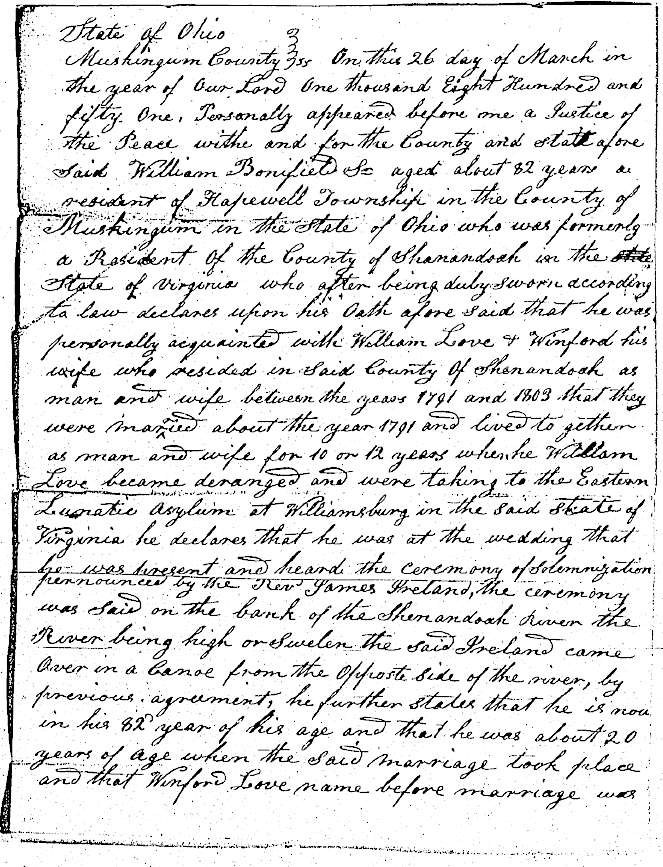 State of Ohio
Muskingum County ss On this 26 day of March in
the year of Our Lord One thousand Eight Hundred and
fifty One, Personally appeared before me a Justice of
the Peace withe and for the County and state afore
Said William Bonifield Sr aged about 82 years a
resident of Hapewell Township in the County of
Muskingum in the State of Ohio who was formerly
a Resident Of the County of Shanandoah in the state
State of virginia who after being duly sworn according
to law declares upon his Oath afore said that he was
personally acquainted with William Love & Winford his
wife who resided in Said County Of Shenandoah as
man and wife between the years 1791 and 1803 that they
were married about the year 1791 and lived to gether
as man and wife for 10 or 12 years when he William
Love became deranged and were taking to the Eastern
Lunatic Asylum at Williamsburg in the said state of
Virginia he declares that he was at the wedding that
he was present and heard the ceremony of Solemnization
pernounced by the Revd James Ireland, the ceremony
was Said on the bank of the Shenandoah River the
River being high or Swelen the said Ireland came
Over in a Canoe from the Opposte side of the river, by
previous agreement, he further states that he is now
in his 82d year of his age and that he was about 20
years of age when the said marriage took place
and that Winford Love name before marriage was